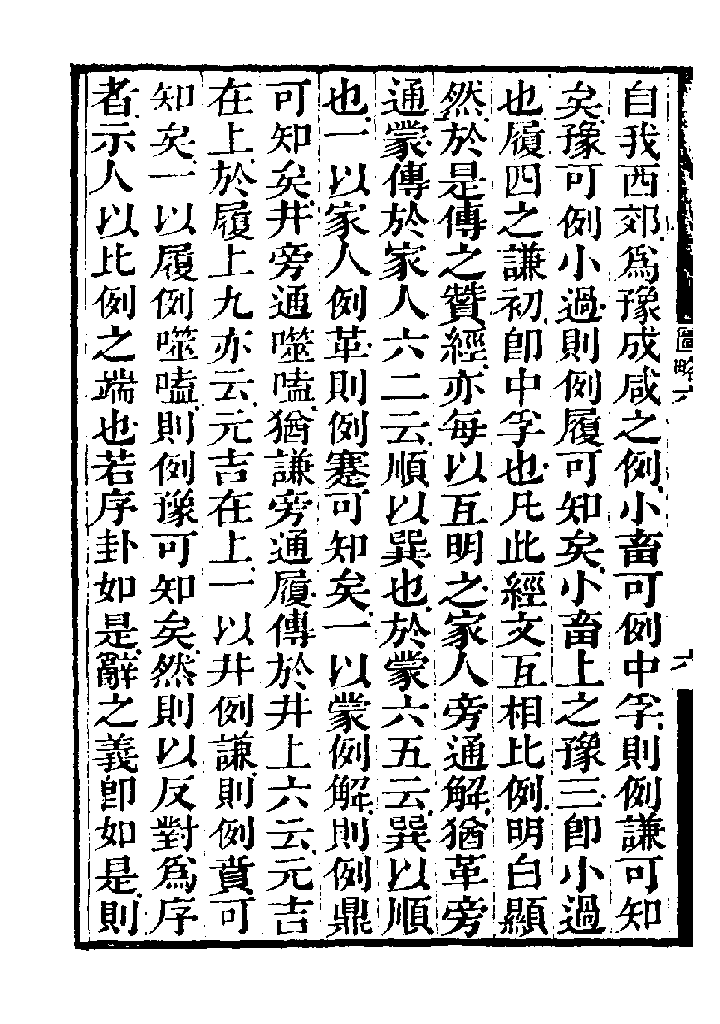 自我西郊爲豫成咸之例小畜可例中孚則例謙可知
矣豫可例小過則例履可知矣小畜上之豫三卽小過
也履四之謙初卽中孚也凡此經文互相比例明白顯
然於是傳之贊經亦每以互明之家人旁通解猶革旁
通蒙傳於家人六二云順以巽也於蒙六五云巽以順
也一以家人例革則例蹇可知矣一以蒙例解則例鼎
可知矣井旁通噬嗑猶謙旁通履傳於井上六云元吉
在上於履上九亦云元吉在上一以井例謙則例賁可
知矣一以履例噬嗑則例豫可知矣然則以反對爲序
者示人以比例之端也若序卦如是辭之義卽如是則
圖略六
六